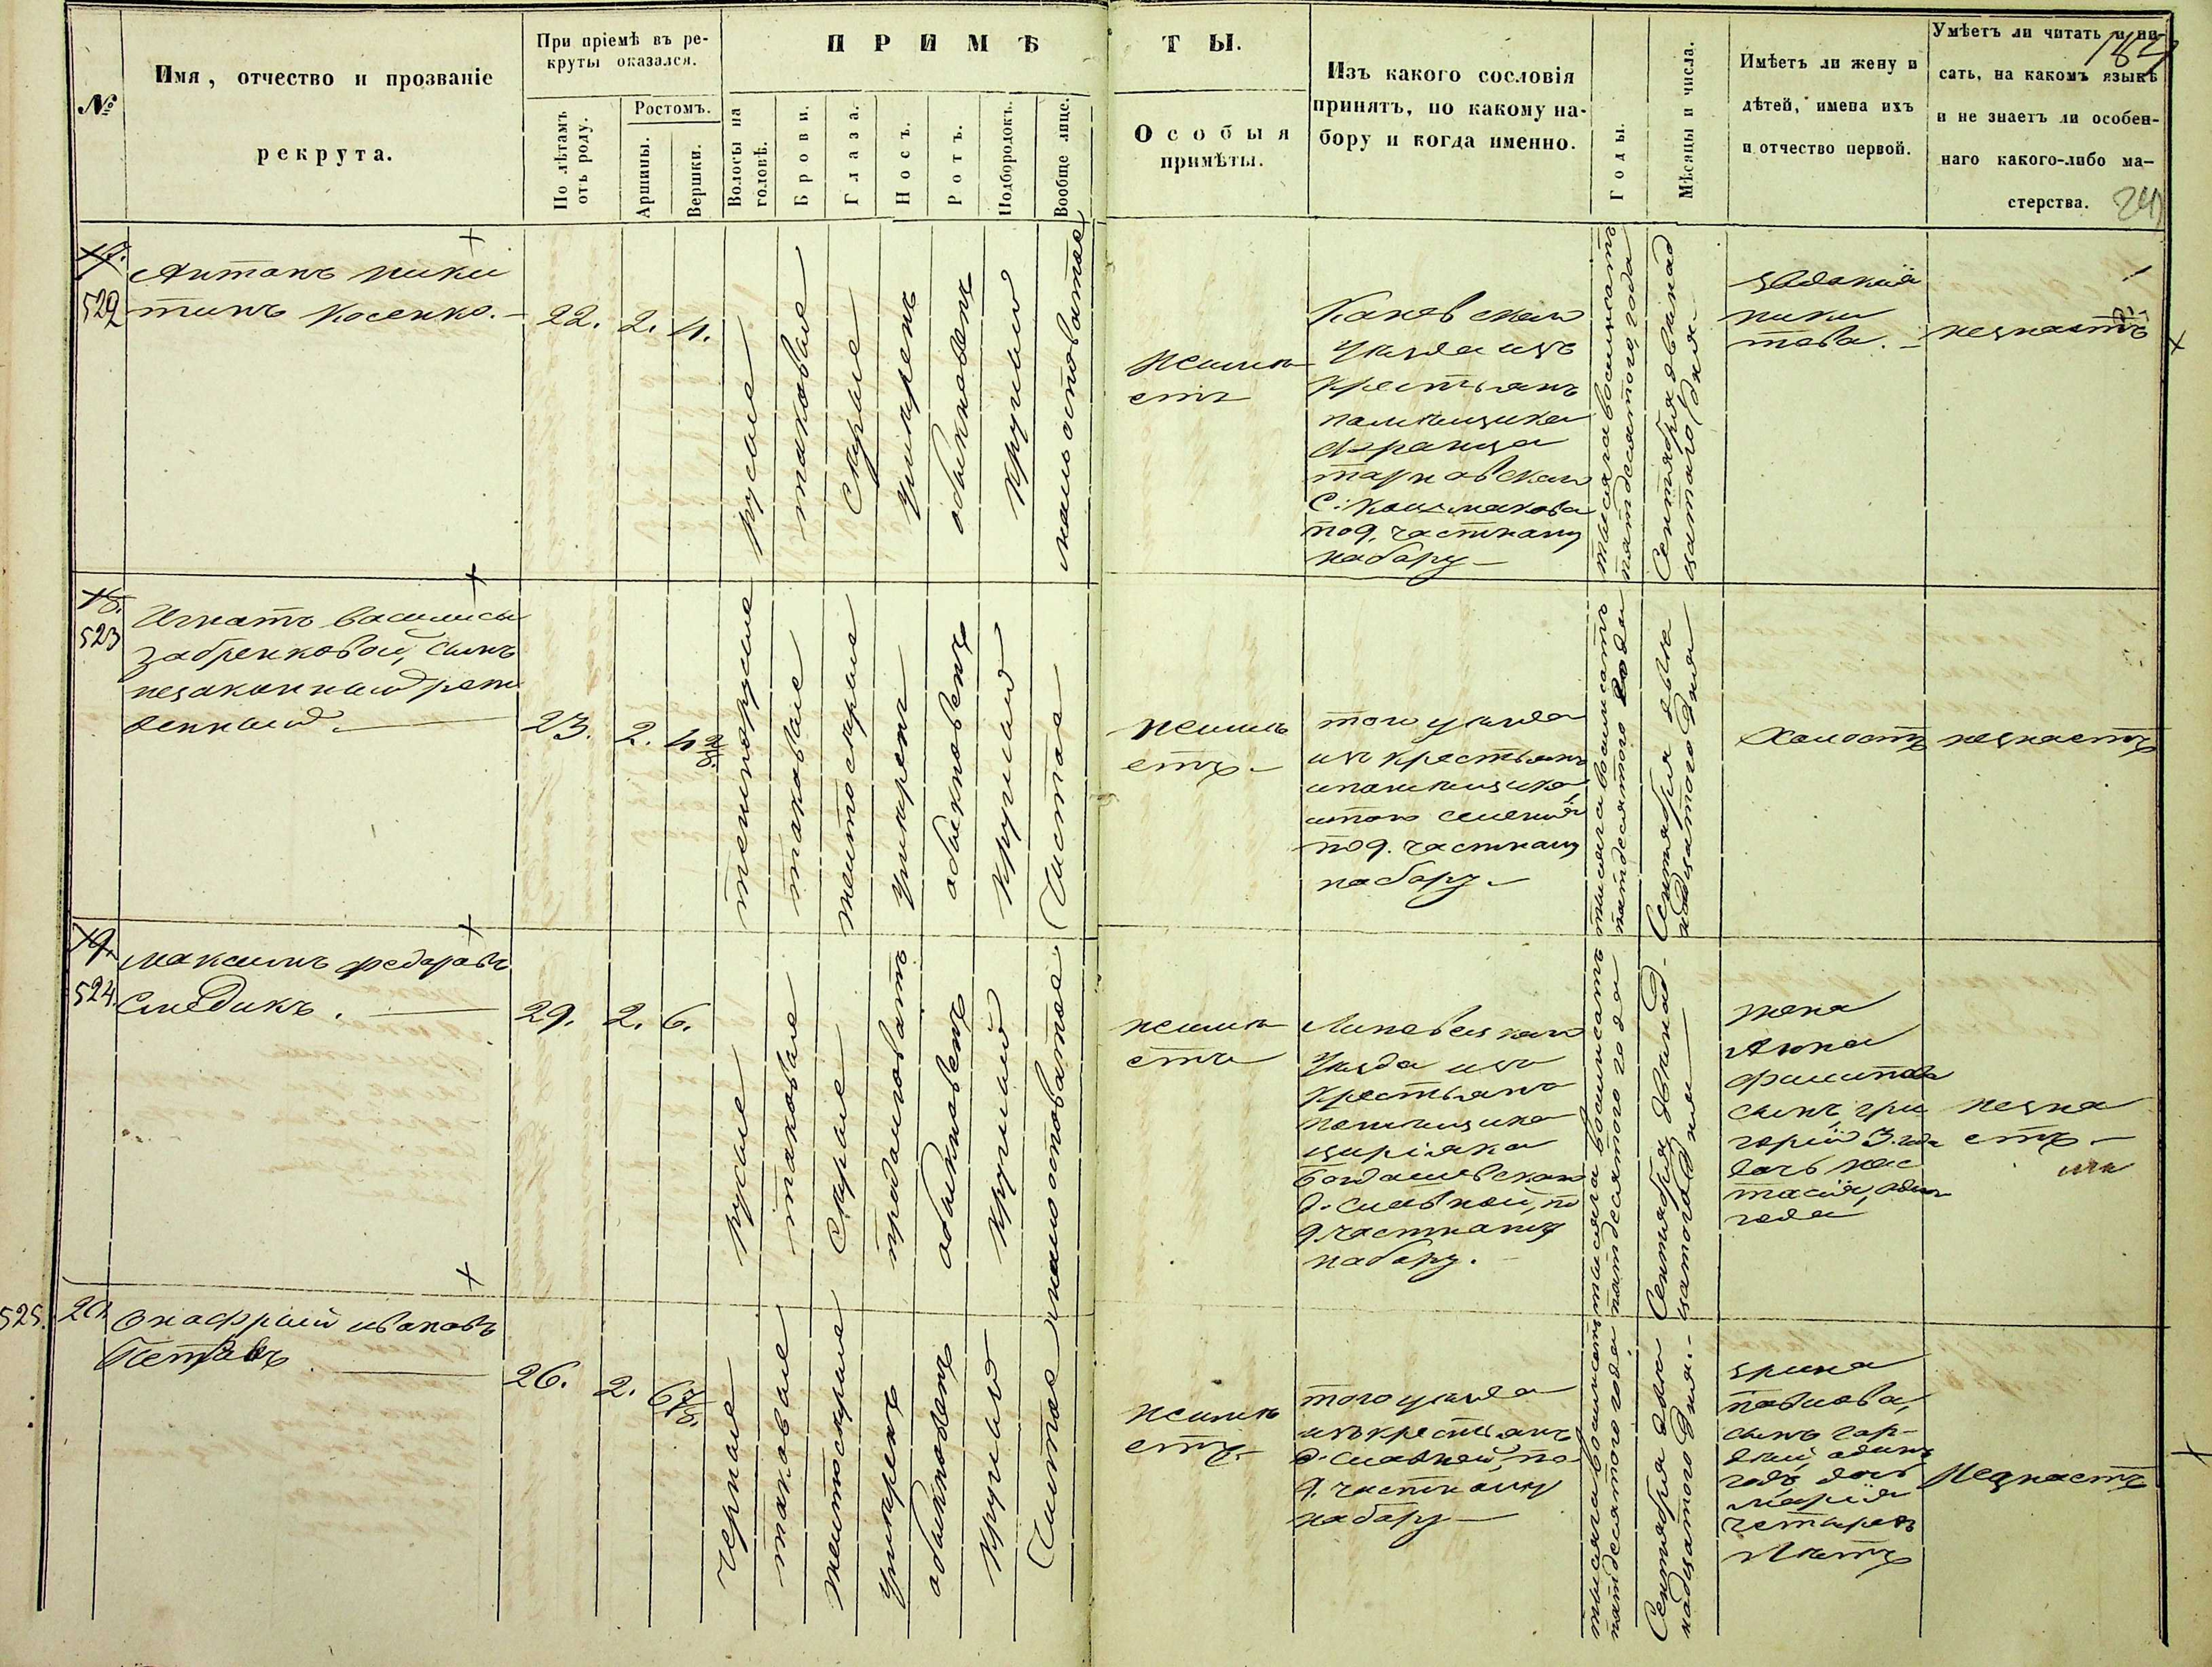 №
Имя, отчество и прозваніе
рекрута.
При пріемѣ въ ре-
круты оказался.
По лѣтамъ
отъ роду.
Ростомъ.
Аршины.
Вершки.
ПРИМѢ
Волосы на
головѣ.
Брови.
Глаза.
Носъ.
Ротъ.
Подбородокъ.
Вообще лице.
ТЫ.
Особыя
примѣты.
Изъ какого сословія
принятъ, по какому на-
бору и когда именно.
Годы.
Мѣсяцы и числа.
Имѣетъ ли жену и
дѣтей, имена ихъ
и отчество первой.
Умѣетъ ли читать и пи-
сать, на какомъ языкѣ
и не знаетъ ли особен-
наго какого-либо ма-
стерства.
522
Антонъ Ники
тинъ Косенко.
22.
2.
4.
русые
таковые
Серые
умѣренъ
обыкновенъ
круглый
мало остоватое
неимѣ
етъ
Каневскаго
Уѣзда изъ
крестьянъ
помѣщика
Франца
Тарновскаго
по 9. частному
набору
тысяча восемьсотъ
пятдесятого года
Сентября двѣнад
цатого дня.
Евдокія
Ники
това.
незнаетъ
18.
523
Игнатъ Василисы
Забренковой, сынъ
незаконный рож
денный
23.
2.
4 2/8.
темнорусые
таковые
желтосерые
умѣренъ
обыкновенъ
круглый
Чистое
неимѣ
етъ
того уѣзда
изъ крестьянъ
итого селенія
по 9. частному
набору
тысяча восемьсотъ
пятдесятого года
Сентября двѣ
надцатого дня
Холостъ
незнаетъ
19.
524.
Максимъ Федоровъ
Слѣдикъ.
29.
2.
6.
русые
таковые
Серые
продолговатъ
обыкновенъ
круглый
мало остоватое
неимѣ
етъ
Липовецкаго
Уѣзда изъ
крестьянъ
помѣщика
Богдашевскаго
д. Славной, по
9. частному
набору.
тысяча восемьсотъ
пятдесятого года
Сентября двѣнад-
цатого дня
жена
Анна
Филипова
сынъ Гри
горій 3. года
дочь Нас
тасія, одинъ
года
незна
етъ
525.
20.
Онафрій Ивановъ
26.
2.
6 7/8.
черные
таковые
желтосерые
умѣренъ
обыкновенъ
круглый
Чистое
неимѣ
етъ.
того уѣзда
изъ крестьянъ
д. Славной, по
9. частному
набору
тысяча восемьсотъ
пятдесятого года
Сентября двѣ
надцатого дня.
Ирина
Павлова,
сынъ Гор-
дій, одинъ
годъ дочь
Марія
четырехъ
лѣтъ
Незнаетъ